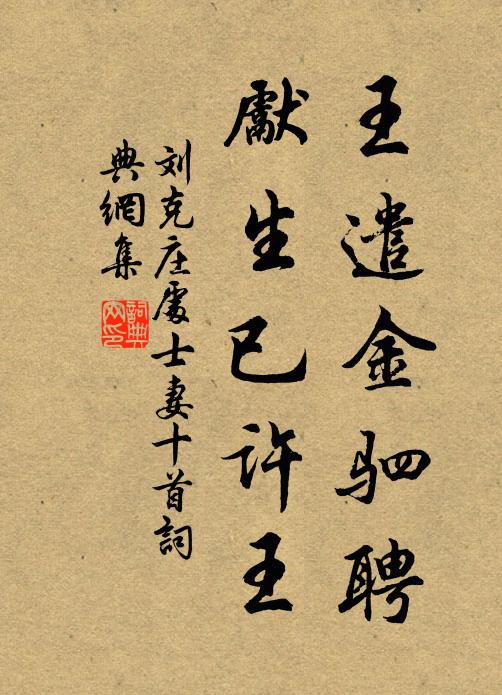 王遣金驷聘
獻生已许王
刘克庄處士妻十首詞
典網集
詞典
网印